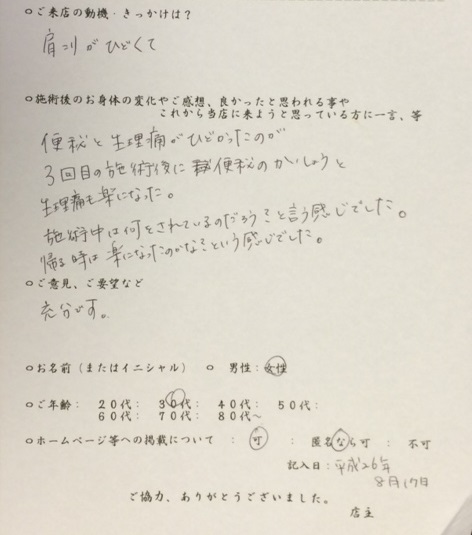 ○ご来店の動機・きっかけは？
肩こりがひどくて
○施術後のお身体の変化やご感想、良かったと思われる事や
これから当店に来ようと思っている方に一言、等
便秘と生理痛がひどかったのが
3回目の施術後に便秘のかいしょうと
生理痛も楽になった。
施術中は何をされているのだろうこと言う感じでした。
帰る時は楽になったのかなこという感じでした。
○ご意見、ご要望など
充分です。
○お名前（またはイニシャル） ○ 男性：女性
○ご年齢： 20代： 30代： 40代： 50代：
60代： 70代： 80代～
○ホームページ等への掲載について ： 可 ： 匿名なら可 ： 不可
記入日：平成26年
8月17日
ご協力、ありがとうございました。
店主